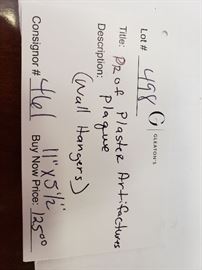 Lot # 498 G GLEATON'S
Title: PR of Plaster Artifactures
Description: Plaque
(Wall Hangers)
11" x 5 1/2"
Consignor # 461 Buy Now Price: 125.00